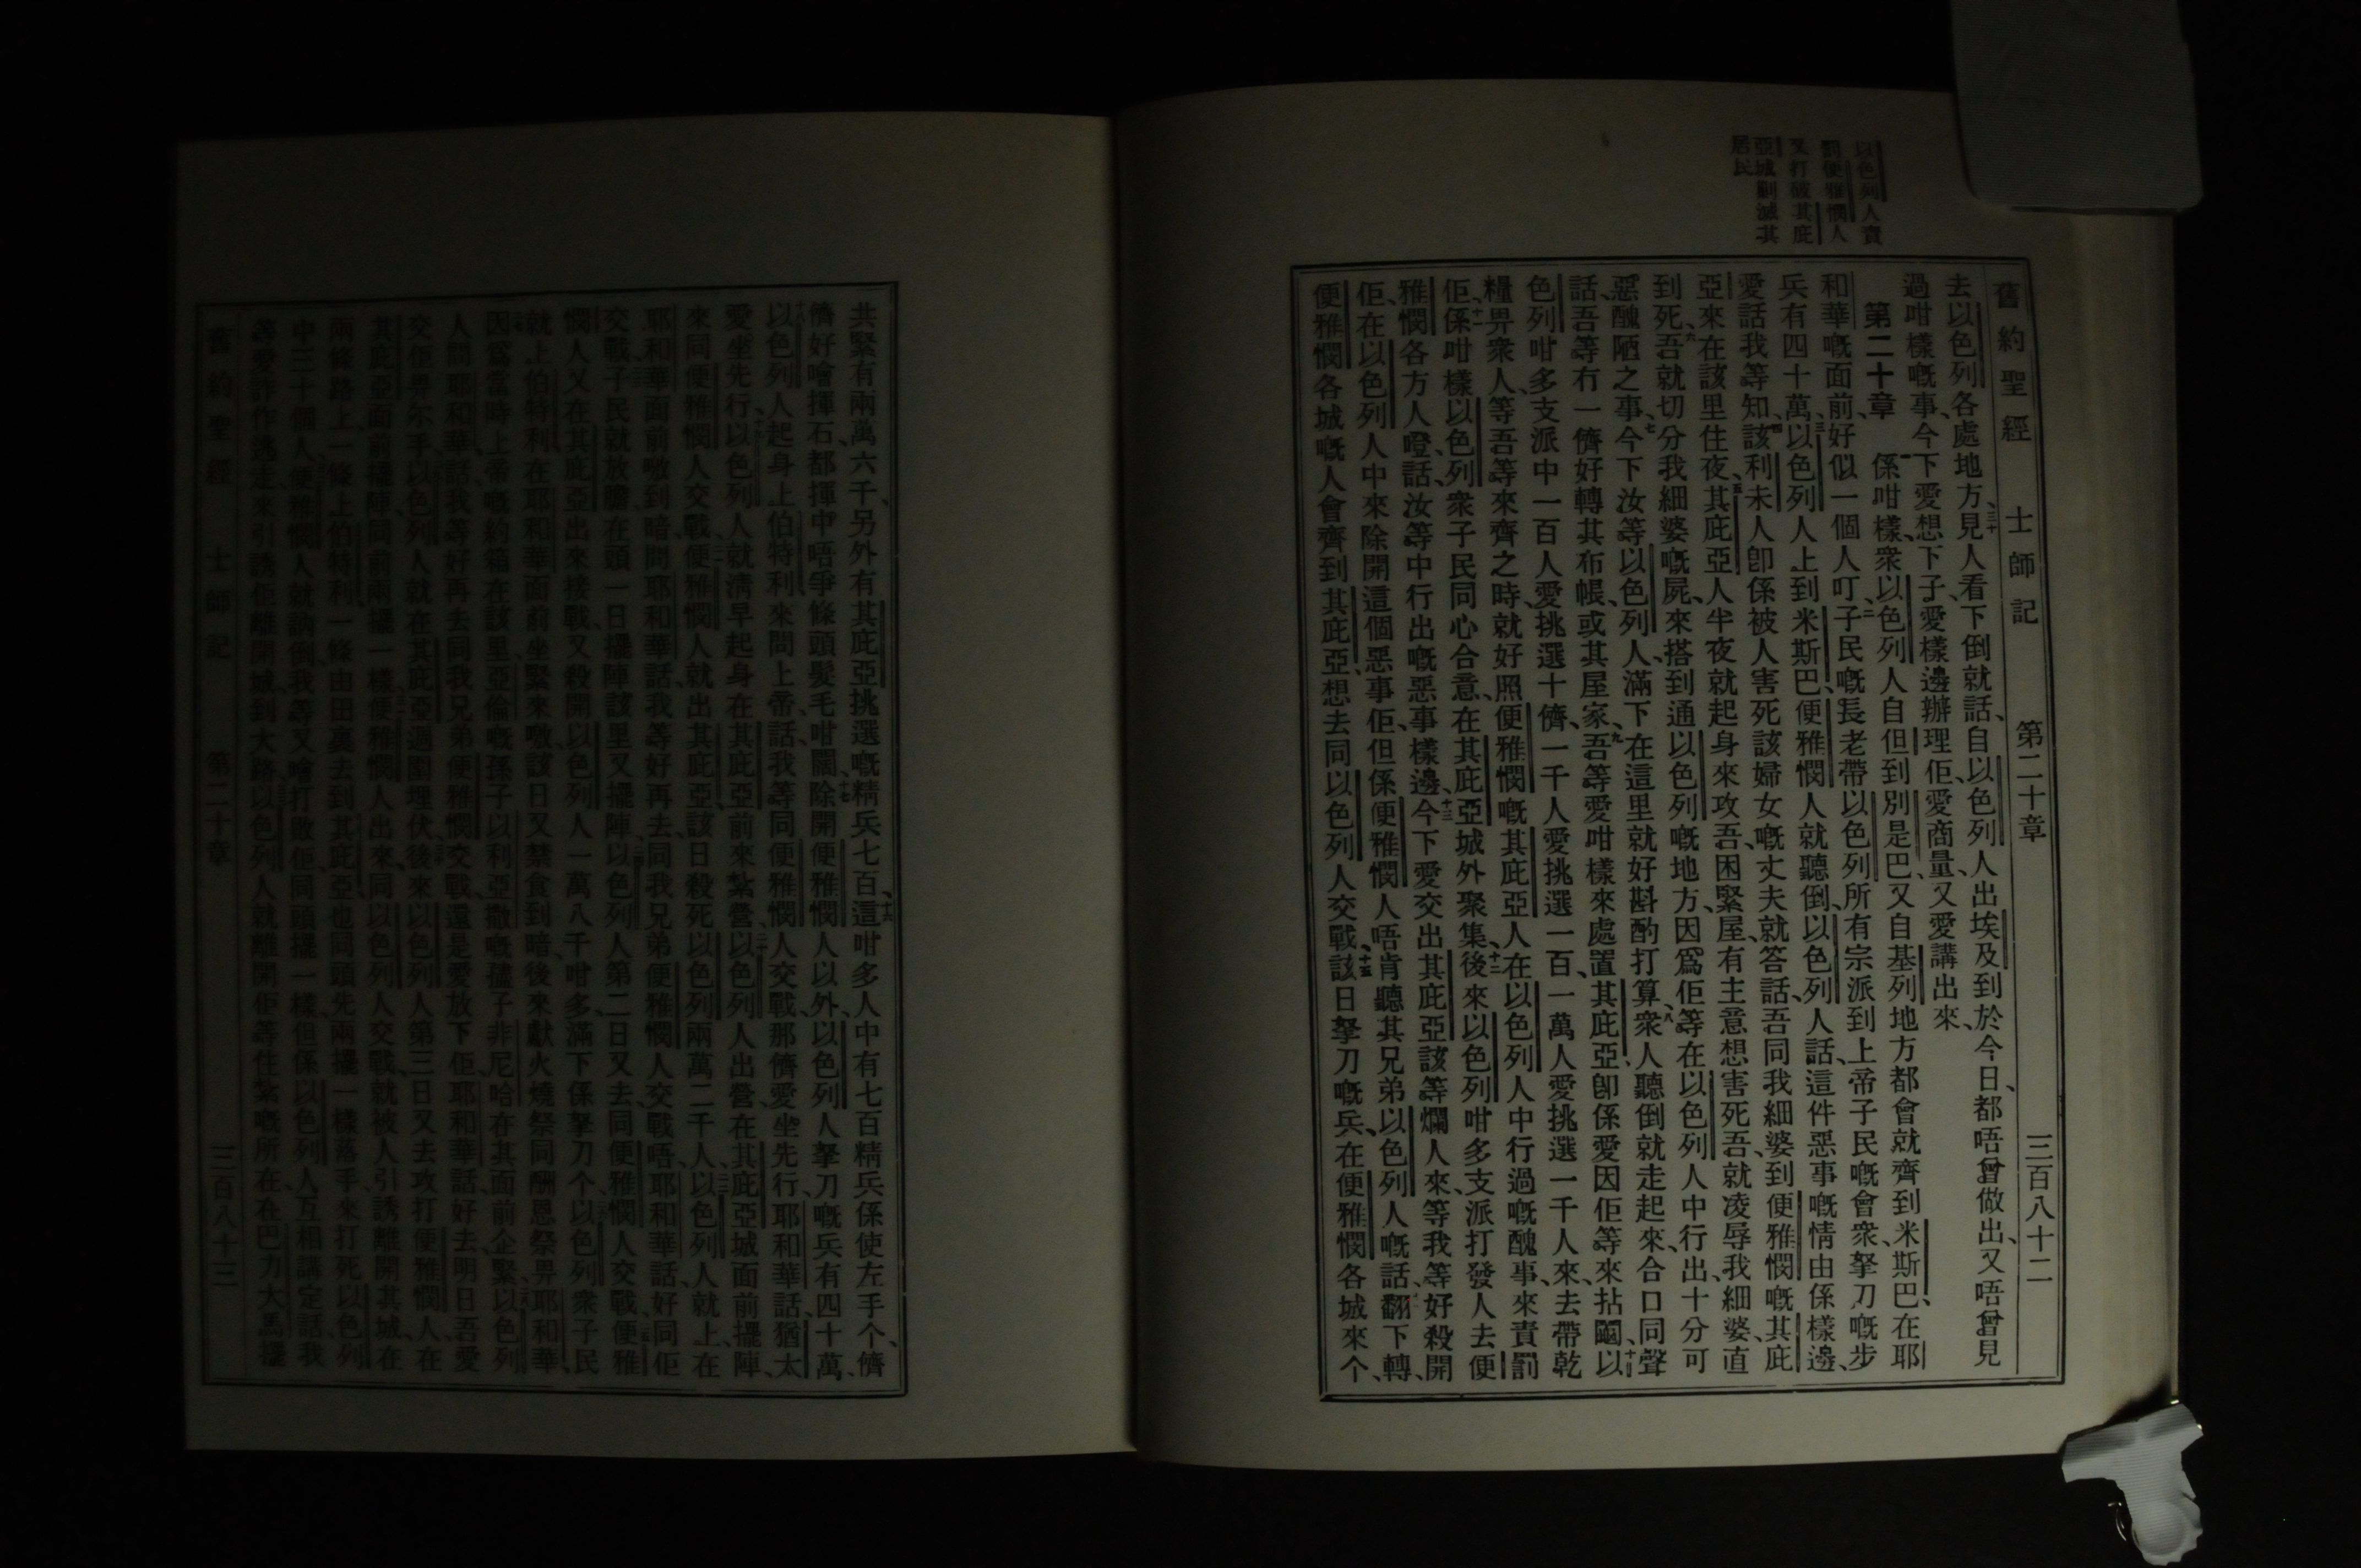 以色列人責
罰便雅憫人
又打破其庇
亞城剿滅其
居民
舊約聖經 士師記 第二十章 三百八十二
去以色列各處地方、三十見人看下倒就話、自以色列人出埃及到於今日、都唔曾做出、又唔曾見
過咁樣嘅事、今下愛想下子、愛樣邊辦理佢、愛商量、又愛講出來、
第二十章 一係咁樣、衆以色列人自但到別是巴、又自基列地方都會就齊到米斯巴、在耶
和華嘅面前、好似一個人叮、二子民嘅長老帶以色列所有宗派到上帝子民嘅會衆、拏刀嘅步
兵有四十萬、三以色列人上到米斯巴、便雅憫人就聽倒、以色列人話、這件惡事嘅情由係樣邊、
愛話我等知、四該利未人卽係被人害死該婦女嘅丈夫就答話、吾同我細婆到便雅憫嘅其庇
亞來在該里住夜、五其庇亞人半夜就起身來攻吾、困緊屋、有主意想害死吾、就凌辱我細婆、直
到死、六吾就切分我細婆嘅屍、來搭到通以色列嘅地方、因爲佢等在以色列人中行出十分可
惡醜陋之事、七今下汝等以色列人、滿下在這里就好斟酌打算、八衆人聽倒就走起來、合口同聲
話、吾等冇一儕好轉其布帳、或其屋家、九吾等愛咁樣來處置其庇亞、卽係愛因佢等來拈鬮、十以
色列咁多支派中一百人愛挑選十儕、一千人愛挑選一百、一萬人愛挑選一千人來、去帶乾
糧畀衆人、等吾等來齊之時、就好照便雅憫嘅其庇亞人在以色列人中行過嘅醜事、來責罰
佢、十一係咁樣以色列衆子民同心合意、在其庇亞城外聚集、十二後來以色列咁多支派打發人去便
雅憫各方人嶝、話、汝等中行出嘅惡事樣邊、十三今下愛交出其庇亞該等爛人來、等我等好殺開
佢、在以色列人中來除開這個惡事佢、但係便雅憫人唔肯聽其兄弟以色列人嘅話、十四翻下轉、
便雅憫各城嘅人會齊到其庇亞、想去同以色列人交戰、十五該日拏刀嘅兵、在便雅憫各城來个、
共緊有兩萬六千、另外有其庇亞挑選嘅精兵七百、十六這咁多人中有七百精兵係使左手个、儕
儕好噲揮石、都揮中唔爭條頭髮毛咁濶、十七除開便雅憫人以外、以色列人拏刀嘅兵有四十萬、
十八以色列人起身上伯特利、來問上帝話、我等同便雅憫人交戰、那儕愛坐先行、耶和華話、猶太
愛坐先行、十九以色列人就淸早起身在其庇亞前來紮營、二十以色列人出營、在其庇亞城面前擺陣、
來同便雅憫人交戰、便雅憫人就出其庇亞、該日殺死以色列兩萬二千人、以色列人就上、在
耶和華面前噭到暗、問耶和華話、我等好再去同我兄弟便雅憫人交戰唔、耶和華話、好同佢
交戰、子民就放膽、在頭一日擺陣該里又擺陣、以色列人第二日又去同便雅憫人交戰、便雅
憫人又在其庇亞出來接戰、又殺開以色列人一萬八千咁多、滿下係拏刀个、以色列衆子民
就上伯特利、在耶和華面前坐緊來噭、該日又禁食到暗、後來獻火燒祭同酬恩祭畀耶和華、
因爲當時上帝嘅約箱在該里、亞倫嘅孫子以利亞撒嘅孻子非尼哈在其面前企緊、以色列
人問耶和華話、我等好再去同我兄弟便雅憫交戰、還是愛放下佢、耶和華話、好去、明日吾愛
交佢畀尔手、以色列人就在其庇亞週圍埋伏、後來以色列人第三日又去攻打便雅憫人、在
其庇亞面前擺陣、同前兩擺一樣、便雅憫人出來、同以色列人交戰、就被人引誘離開其城、在
兩條路上、一條上伯特利、一條由田裏去到其庇亞、也同頭先兩擺一樣落手來打死以色列
中三十個人、便雅憫人就話倒、我等又噲打敗佢、同頭擺一樣、但係以色列人互相講定話、我
等愛詐作逃走、來引誘佢離開城、到大路、以色列人就離開佢等住紮嘅所在、在巴力大馬擺
舊約聖經 士師記 第二十章 三百八十三